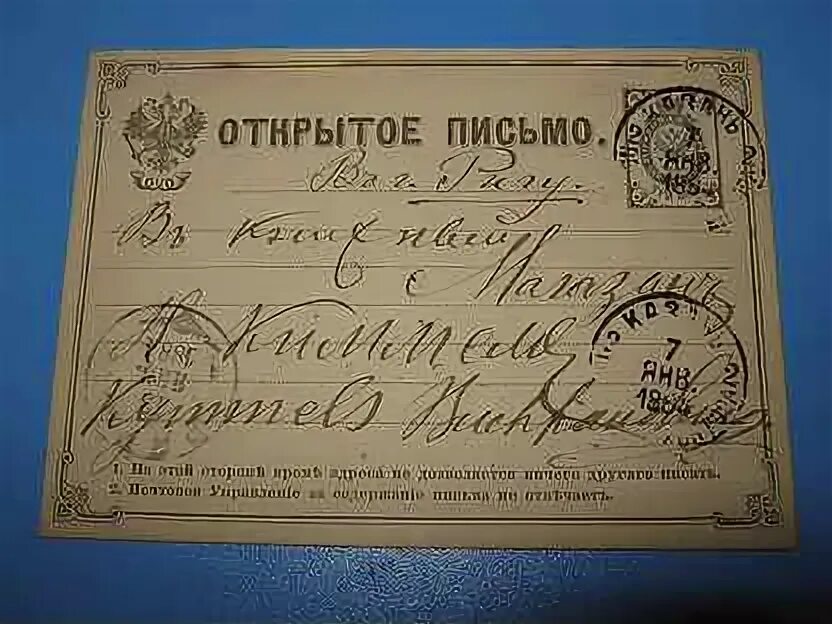 ОТКРЫТОЕ ПИСЬМО.
Въ г. Ригу.
Въ Книжный
Магазинъ
Н. Киммель
Kymmels Buchhandlung
КАЗАНЬ
ЯНВ.
КАЗАНЬ 2
7
ЯНВ.
1. На этой сторонѣ кромѣ адреса не дозволяется ничего другаго писать.
2. Почтовое Управленіе за содержаніе письма не отвѣчаетъ.